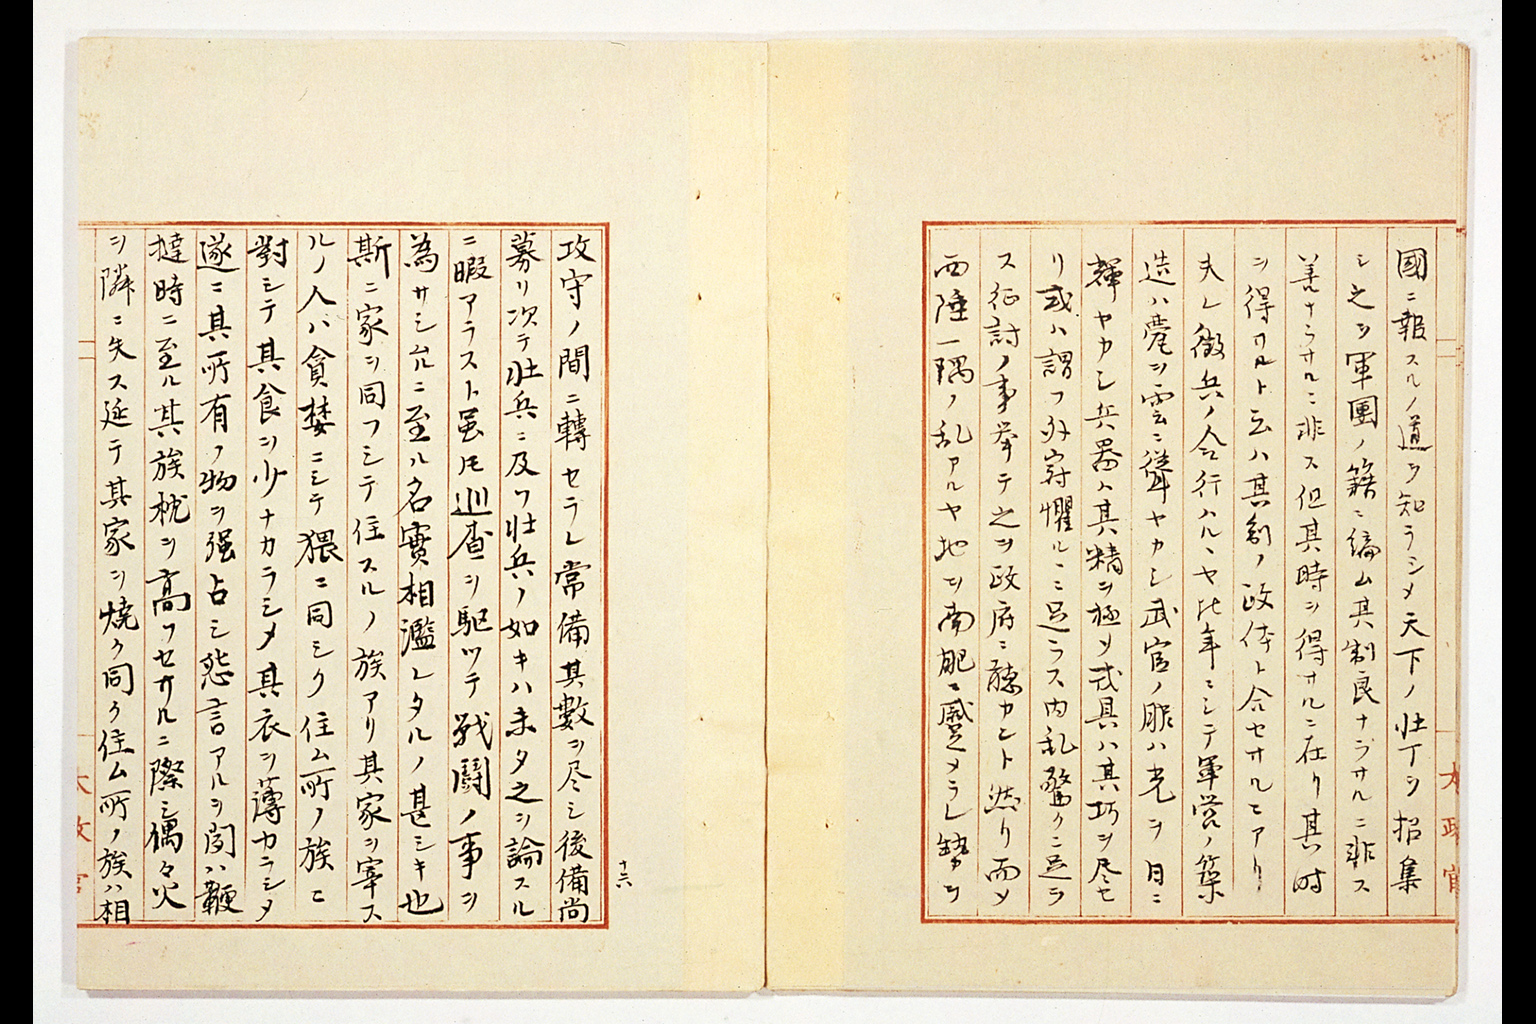 國ニ報スルノ道ヲ知ラシメ天下ノ壮丁ヲ招集
シ之ヲ軍團ノ籍ニ編ム其制良ナラサルニ非ス
善ナラサルニ非ス但其時ヲ得サルニ在リ其時
ヲ得サルト云ハ其創ノ政体ト合セサルヿアリ
夫レ徴兵ノ令行ハルヽヤ比年ニシテ軍営ノ築
造ハ甍ヲ雲ニ聳ヤカシ武官ノ服ハ光ヲ日ニ
輝ヤカシ兵器ハ其精ヲ極メ戎具ハ其巧ヲ尽セ
リ或ハ謂フ外寇懼ルヽニ足ラス内乱驚クニ足ラ
ス征討ノ事挙テ之ヲ政府ニ聴カント然リ而メ
西陲一隅ノ乱アルヤ地ヲ南肥ニ蹙メラレ勢ヲ
太政官
十六
攻守ノ間ニ轉セラレ常備其數ヲ尽シ後備尚
募リ次テ壮兵ニ及フ壮兵ノ如キハ未タ之ヲ論スル
ニ暇アラスト虽𪜈巡査ヲ駆ツテ戦鬪ノ事ヲ
為サシムルニ至ル名實相濫レタルノ甚シキ也
斯ニ家ヲ同フシテ住スルノ族アリ其家ヲ宰ス
ルノ人ハ貪婪ニシテ猥ニ同シク住ム所ノ族ニ
對シテ其食ヲ少ナカラシメ其衣ヲ薄カラシメ
遂ニ其所有ノ物ヲ强占シ怨言アルヲ聞ハ鞭
撻時ニ至ル其族枕ヲ高フセサルニ際シ偶々火
ヲ隣ニ失ス延テ其家ヲ焼ク同ク住ム所ノ族ハ相
太政官